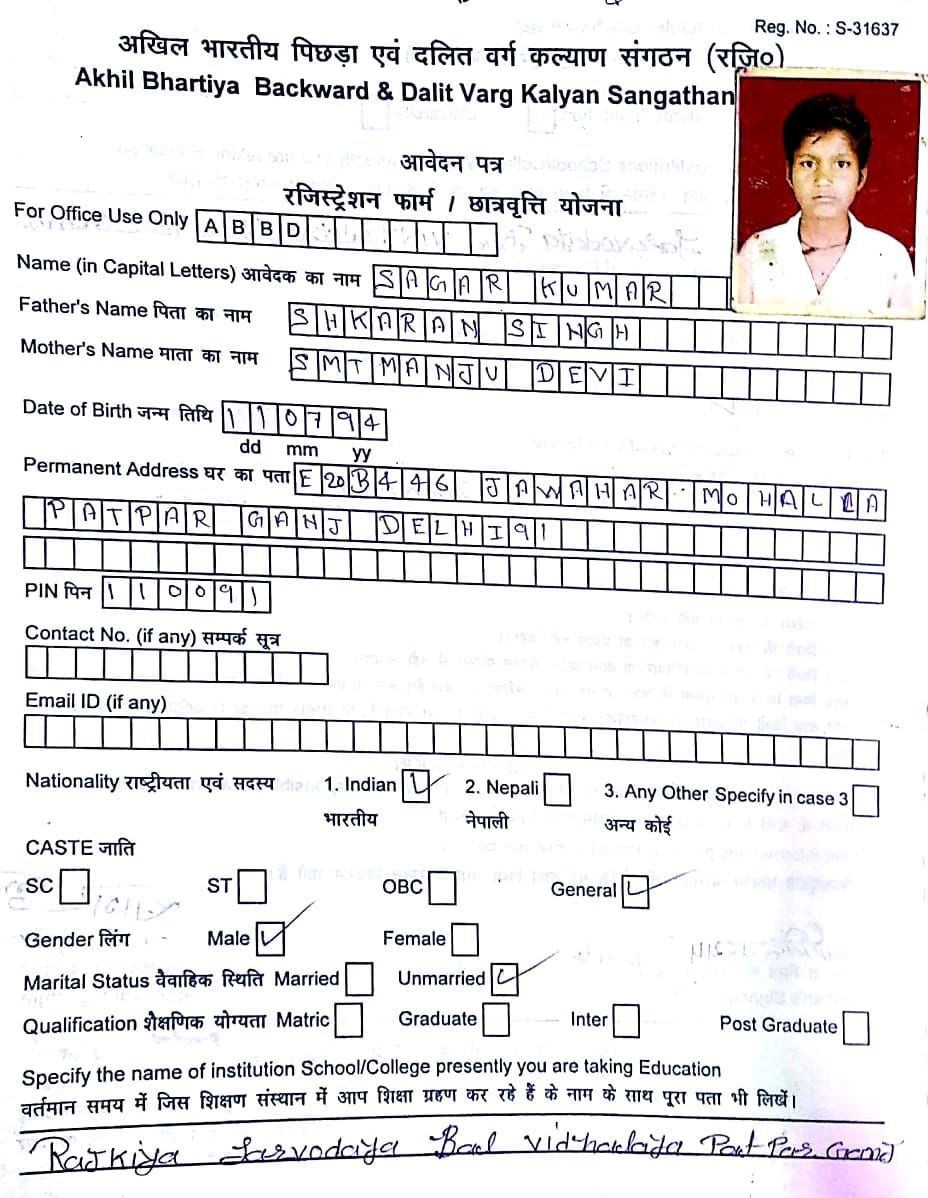 Reg. No. : S-31637
अखिल भारतीय पिछड़ा एवं दलित वर्ग कल्याण संगठन (रजि०)
Akhil Bhartiya Backward & Dalit Varg Kalyan Sangathan
आवेदन पत्र
रजिस्ट्रेशन फार्म / छात्रवृत्ति योजना
For Office Use Only ABBD
Name (in Capital Letters) आवेदक का नाम SAGAR KUMAR
Father's Name पिता का नाम SHKARAN SINGH
Mother's Name माता का नाम SMTMANJU DEVI
Date of Birth जन्म तिथि 110794
dd mm yy
Permanent Address घर का पता E 20B446 JAWAHAR MOHALLA
PATPAR GANJ DELHI91
PIN पिन 110091
Contact No. (if any) सम्पर्क सूत्र
Email ID (if any)
Nationality राष्ट्रीयता एवं सदस्य 1. Indian 1 2. Nepali 3. Any Other Specify in case 3
भारतीय नेपाली अन्य कोई
CASTE जाति
SC ST OBC General
Gender लिंग Male Female
Marital Status वैवाहिक स्थिति Married Unmarried
Qualification शैक्षणिक योग्यता Matric Graduate Inter Post Graduate
Specify the name of institution School/College presently you are taking Education
वर्तमान समय में जिस शिक्षण संस्थान में आप शिक्षा ग्रहण कर रहे हैं के नाम के साथ पूरा पता भी लिखें।
Rajkiya Sarvodaiya Bal